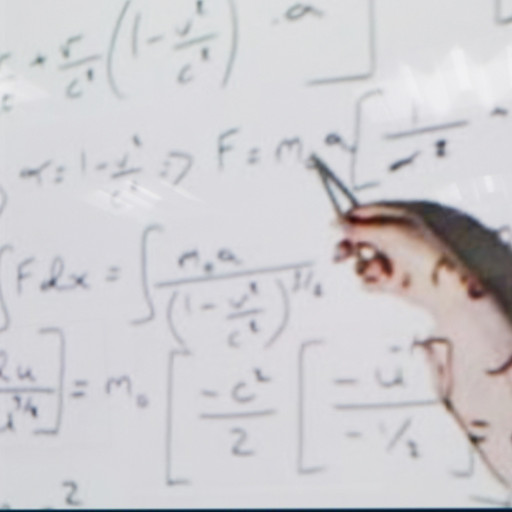 + v/c² (1 - v²/c²) . a ]
α = 1 - v²/c² => F = m₀ a [ 1/
∫ F dx = ∫ m₀ a / (1 - v²/c²)^3/2
du / u^3/2 ] = m₀ [ -c²/2 [ -u / -1/2 ]
2